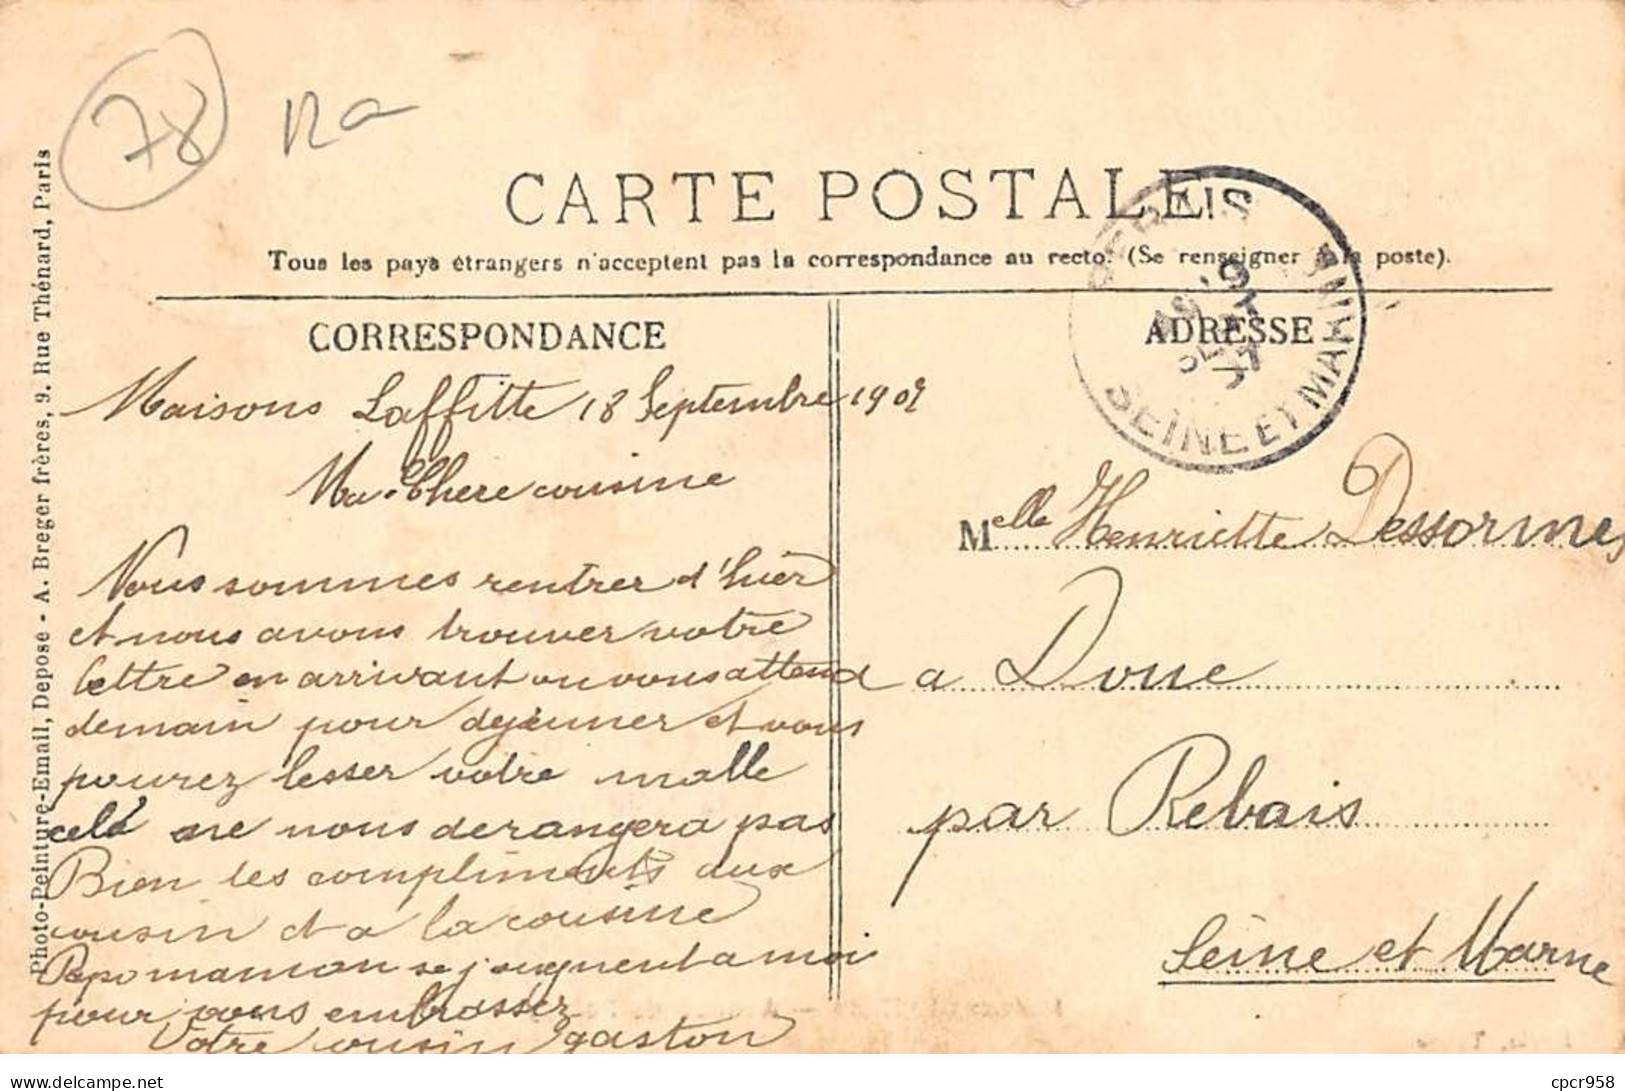 78 Ra
CARTE POSTALE
Tous les pays étrangers n'acceptent pas la correspondance au recto. (Se renseigner à la poste).
CORRESPONDANCE
Maisons Laffitte 18 Septembre 190
Ma Chere cousine
Nous sommes rentrer d'hier
et nous avons trouver votre
lettre en arrivant on vous attend
demain pour dejeuner et vous
pourez lesser votre malle
cela ne nous derangera pas
Bien les compliments aux
cousin et a la cousine
Papa maman se joignent a moi
pour vous embrassez
Votre cousin gaston
ADRESSE
SEINE ET MARNE
Melle Henriette Dessormes
a Doue
par Rebais
Seine et Marne
Photo-Peinture-Email, Depose - A. Breger frères, 9. Rue Thénard, Paris
delcampe.net
cpcr958